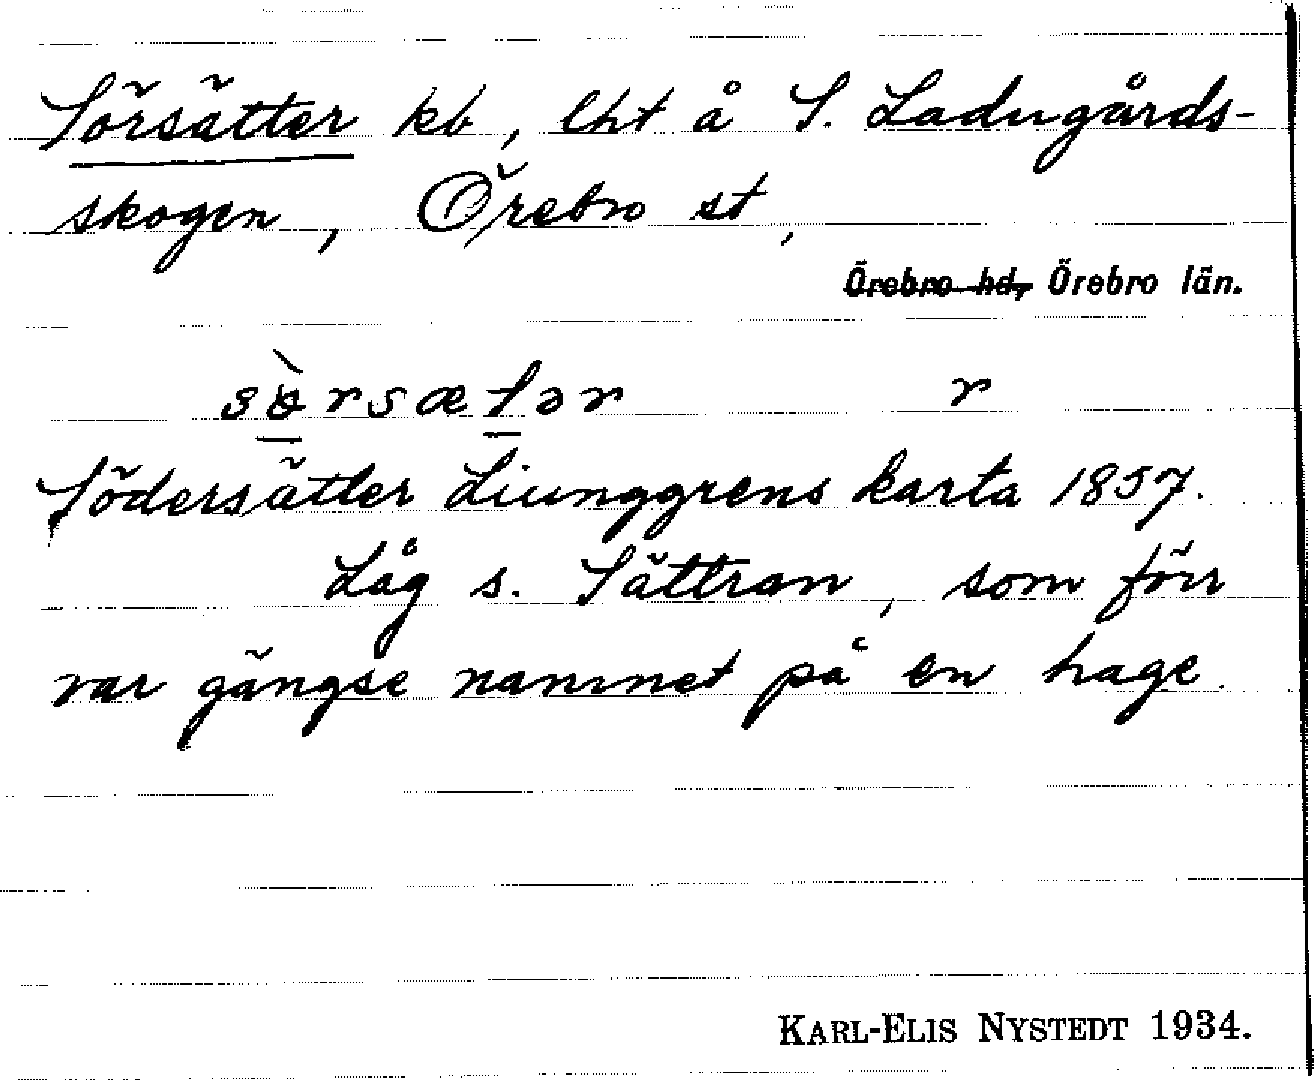 Sörsätter kb, lht å S. Ladugårds-
skogen, Örebro st,
Örebro hd, Örebro län.
sɵ̀rsætər r
Södersätter Liunggrens karta 1857.
Låg s. Sättran, som förr
var gängse namnet på en hage.
KARL-ELIS NYSTEDT 1934.